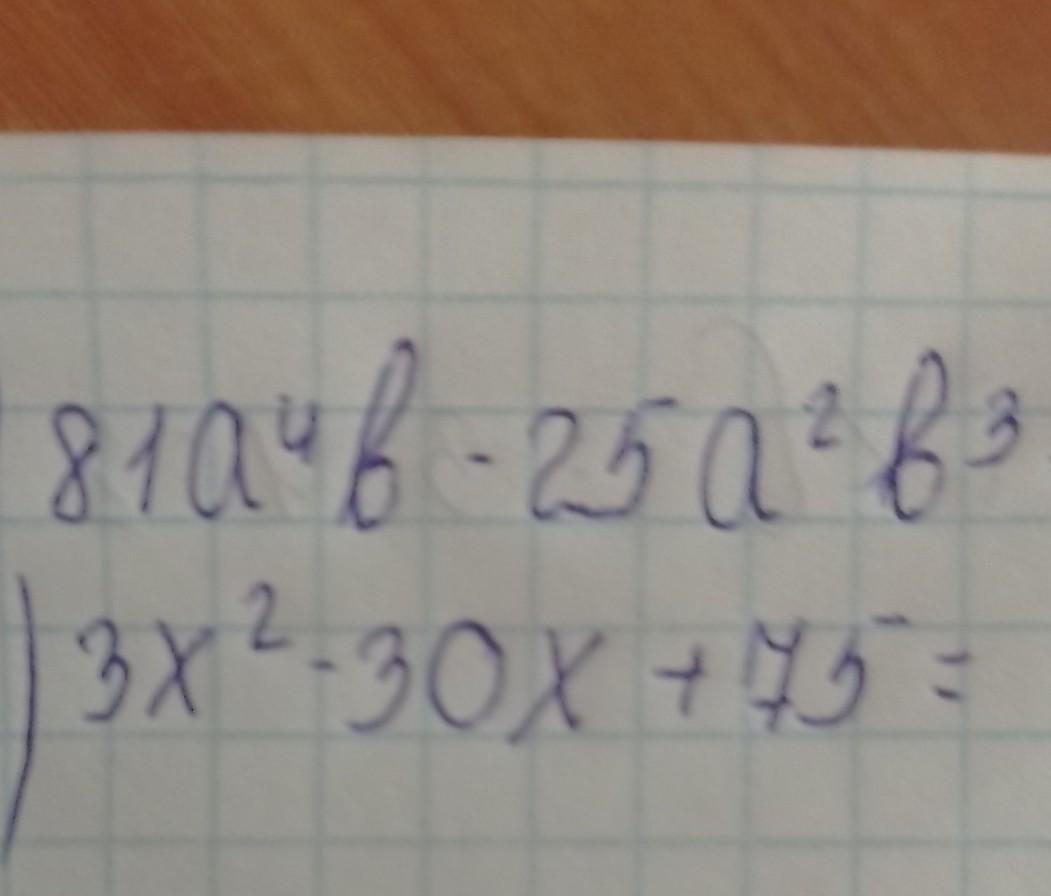 81a⁴b - 25a²b³
) 3x² - 30x + 75 =